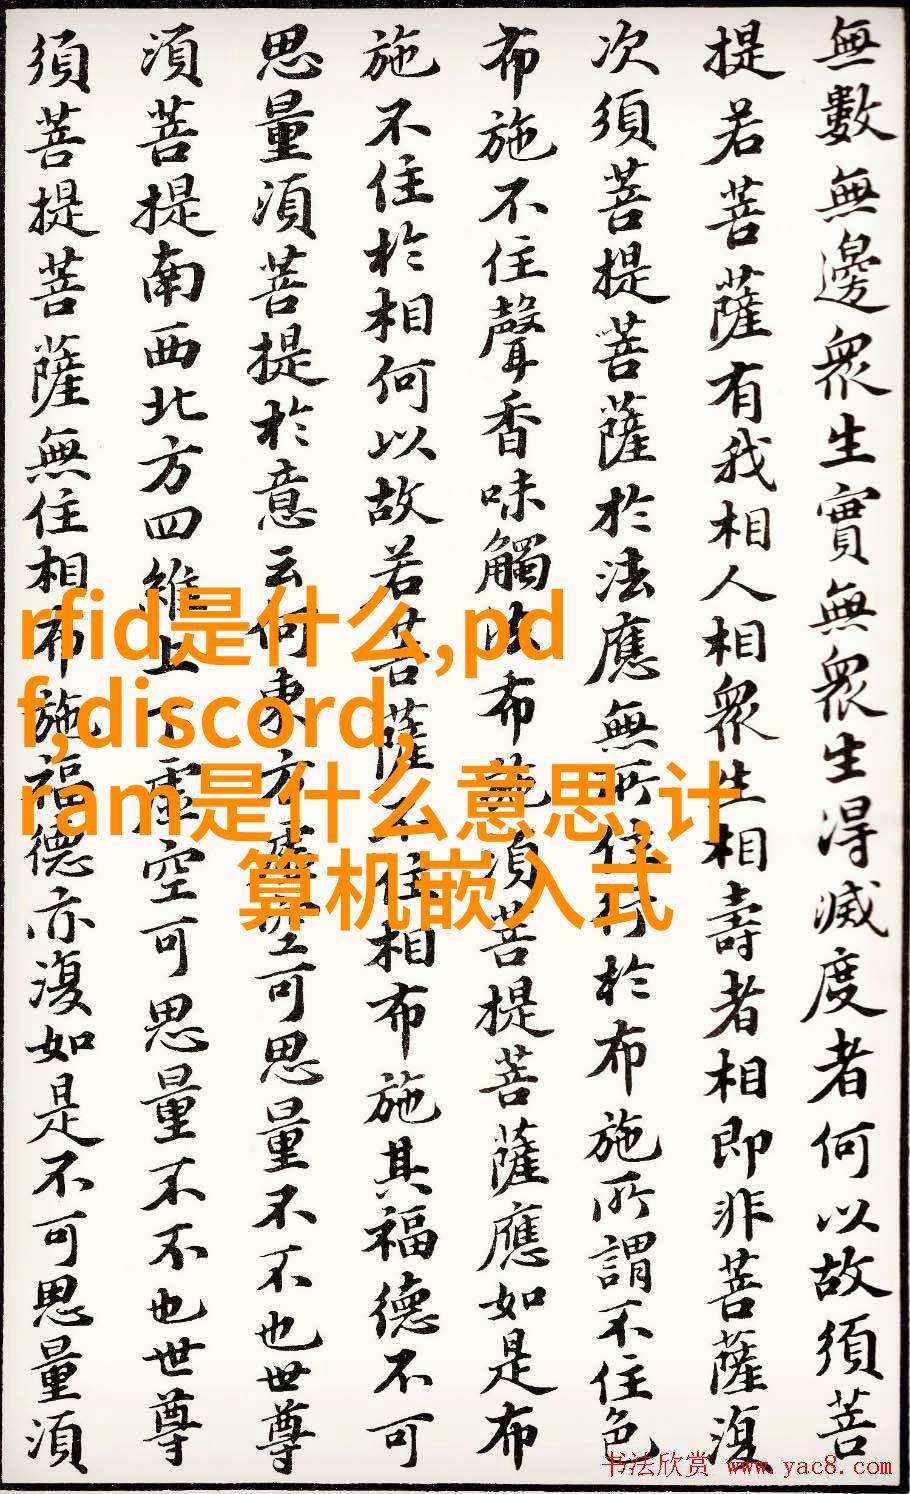 無數無邊衆生實無衆生得滅度者何以故須菩
提若菩薩有我相人相衆生相壽者相即非菩薩復
次須菩提菩薩於法應無所住行於布施所謂不住色
布施不住聲香味觸法布施須菩提菩薩應如是布
施不住於相何以故若菩薩不住相布施其福德不可
思量須菩提於意云何東方虛空可思量不不也世尊
須菩提南西北方四維上下虛空可思量不不也世尊
須菩提菩薩無住相布施福德亦復如是不可思量須
rfid是什么,pd
f,discord,
ram是什么意思,计
算机嵌入式
书法欣赏 www.yac8.com